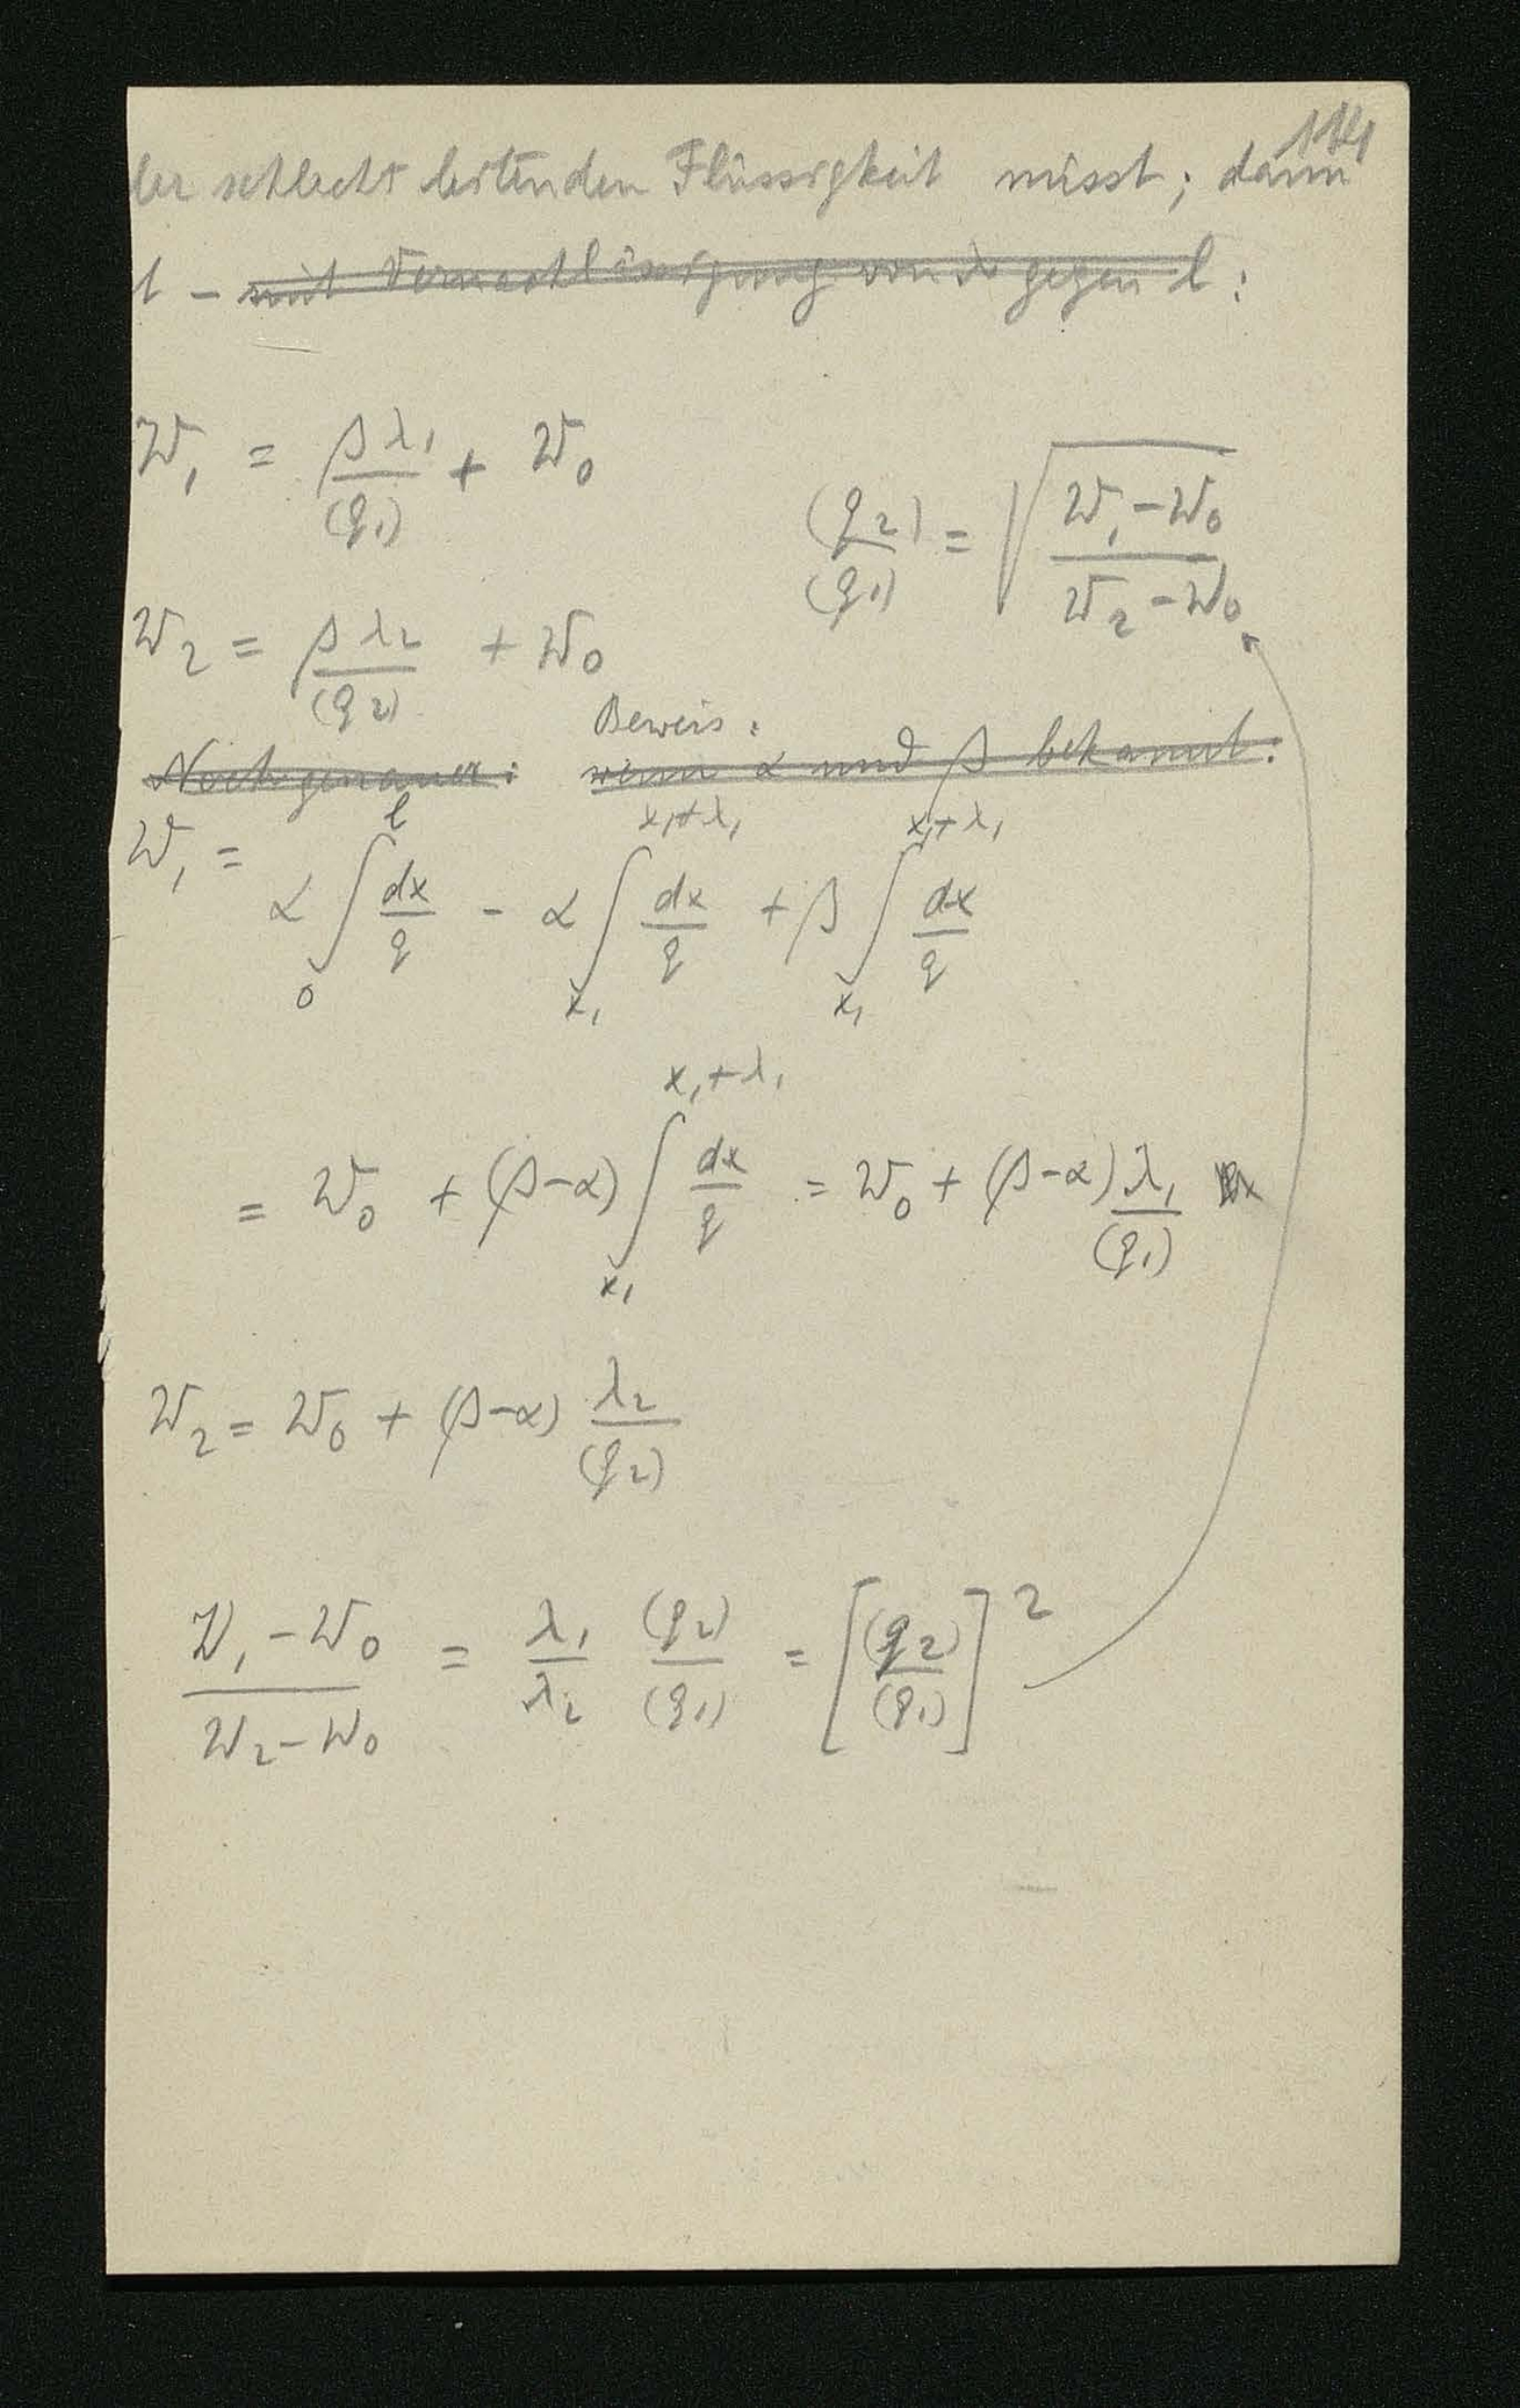 114
der schlecht leitenden Flüssigkeit misst; dann
t – mit Vernachlässigung von λ gegen l :
W₁ = βλ₁/(q₁) + W₀
(q₂)/(q₁) = √((W₁ – W₀)/(W₂ – W₀))
W₂ = βλ₂/(q₂) + W₀
Beweis :
Noch genauer : wenn α und β bekannt :
W₁ = α ∫₀^l dx/q – α ∫_{x₁}^{x₁+λ₁} dx/q + β ∫_{x₁}^{x₁+λ₁} dx/q
= W₀ + (β–α) ∫_{x₁}^{x₁+λ₁} dx/q = W₀ + (β–α) λ₁/(q₁)
W₂ = W₀ + (β–α) λ₂/(q₂)
(W₁ – W₀)/(W₂ – W₀) = λ₁/λ₂ (q₂)/(q₁) = [(q₂)/(q₁)]²